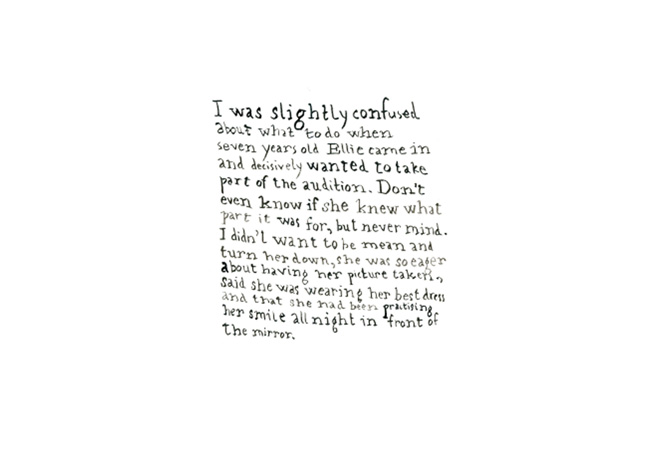 I was slightly confused
about what to do when
seven years old Ellie came in
and decisively wanted to take
part of the audition. Don't
even know if she knew what
part it was for, but never mind.
I didn't want to be mean and
turn her down, she was so eager
about having her picture taken,
said she was wearing her best dress
and that she had been practising
her smile all night in front of
the mirror.